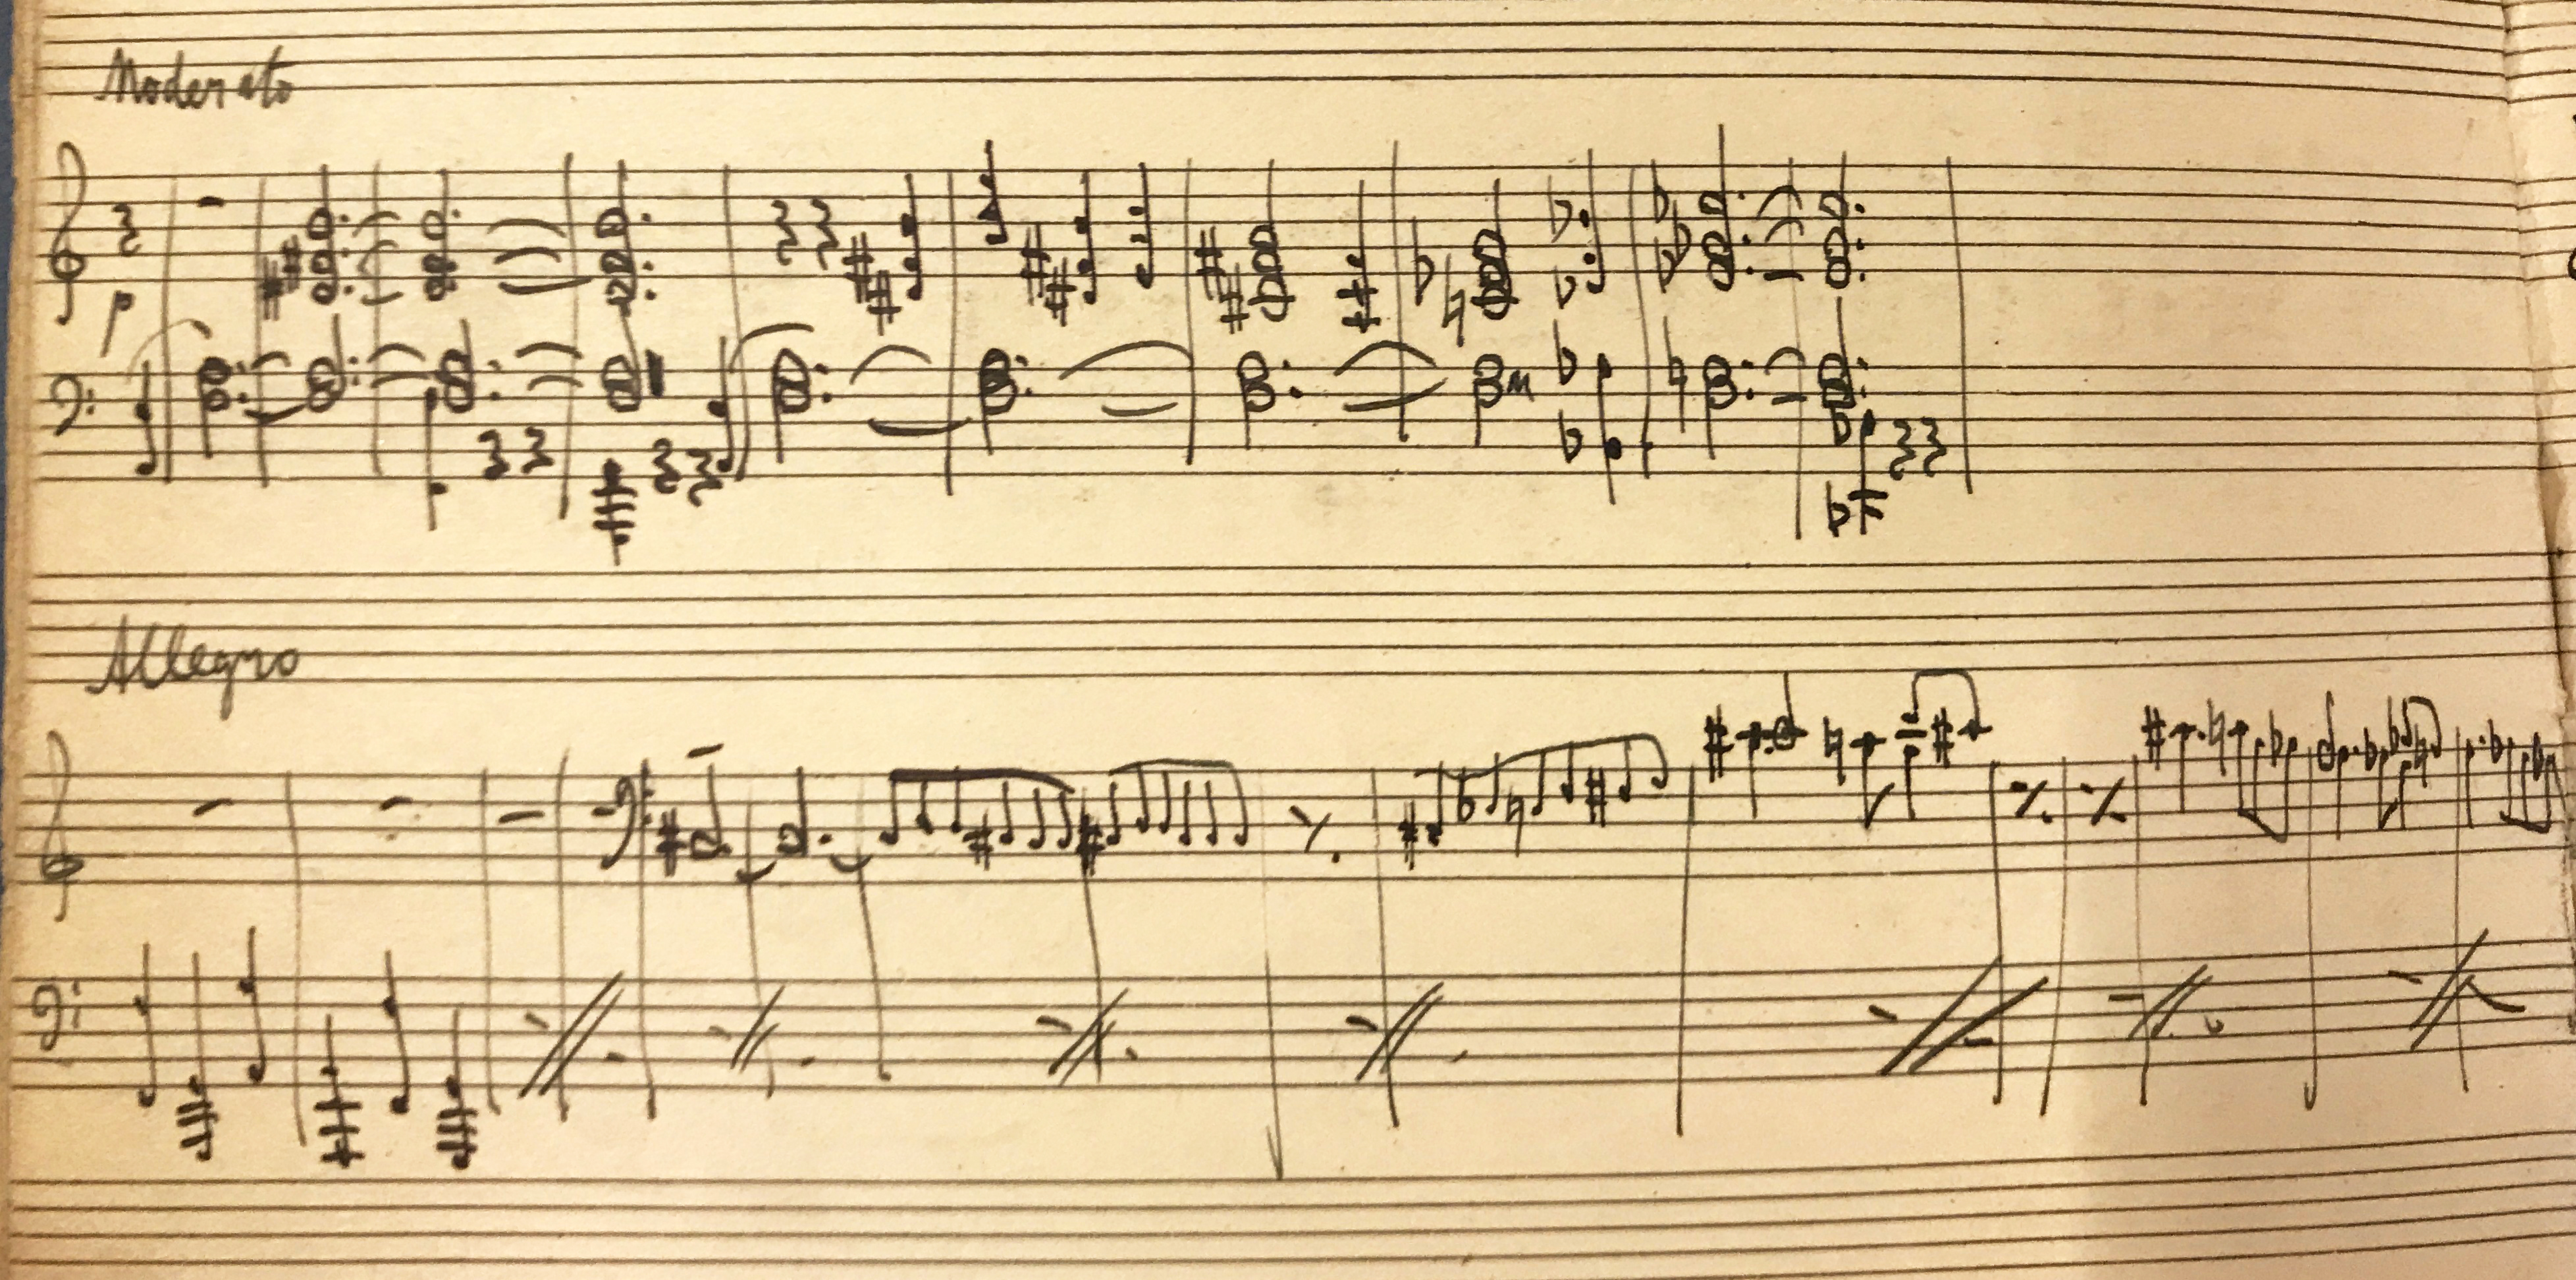 Moderato
p
Allegro